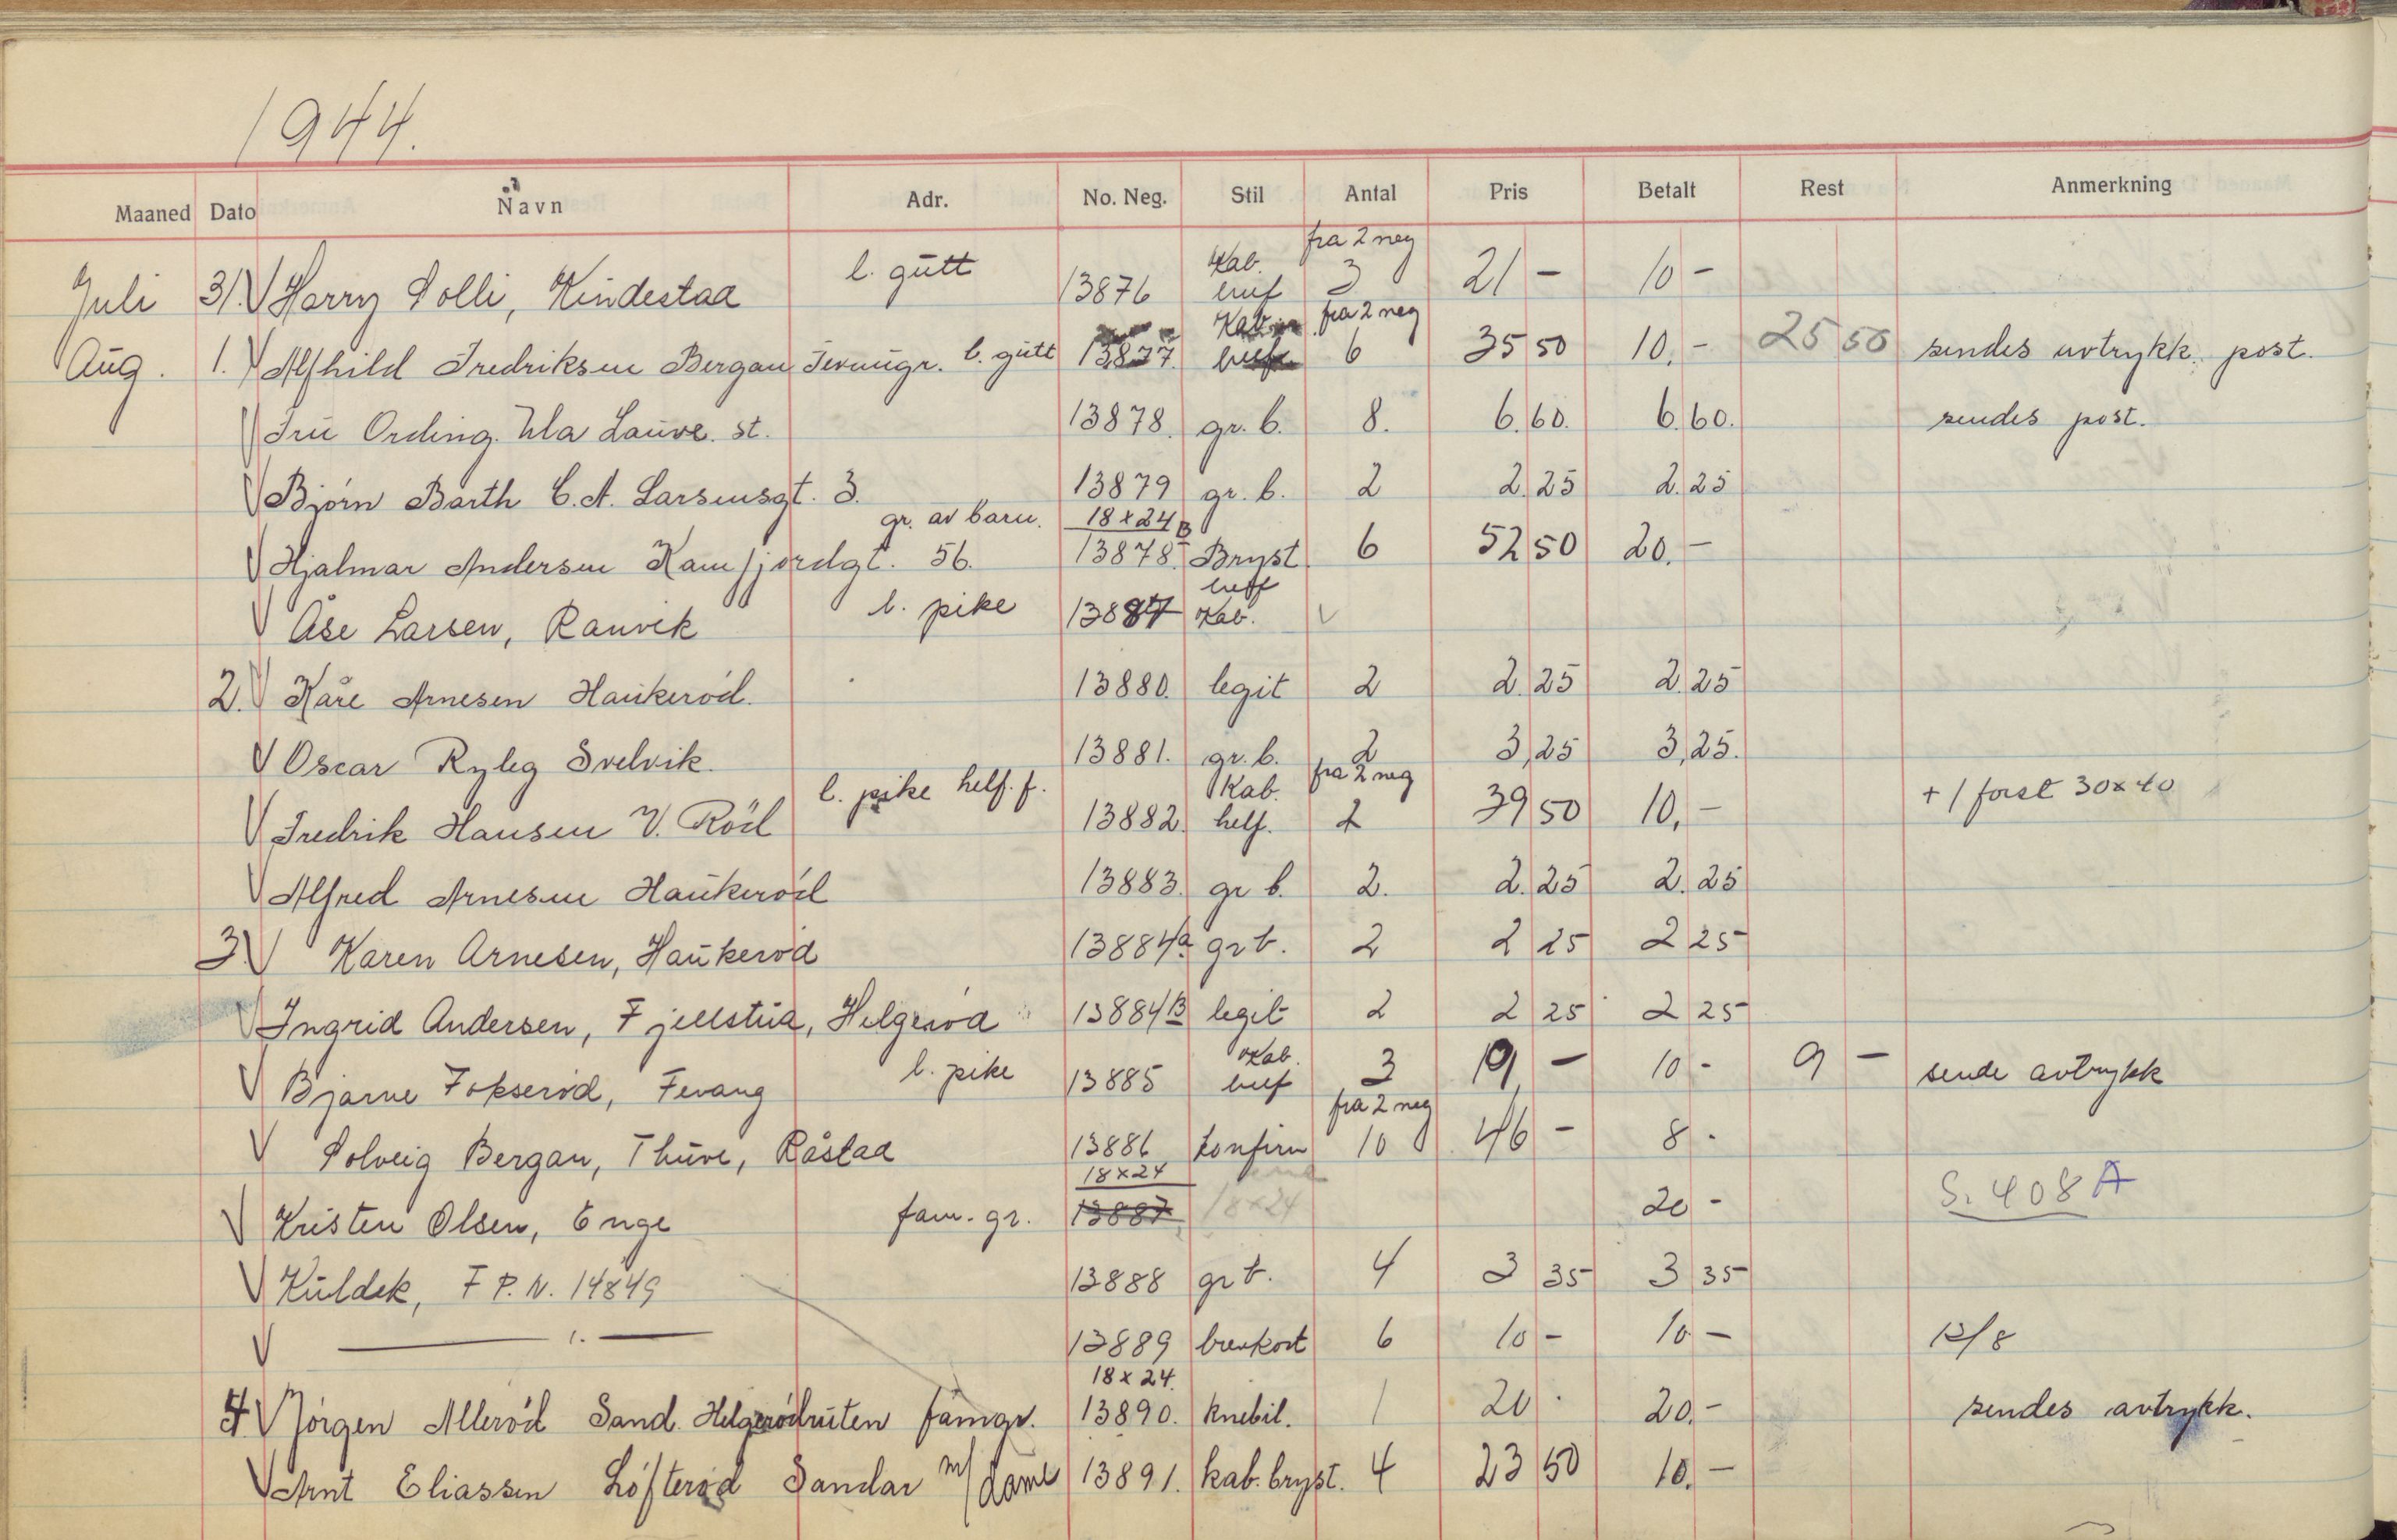 1944.
Maaned Dato Navn Adr. No. Neg. Stil Antal Pris Betalt Rest Anmerkning
Juli 31. Harry Solli, Kindestad l. gutt 13876 Kab. fra 2 neg 3 21 - 10 -
Aug. 1. Alfhild Fredriksen Bergan Jernugr. l. gutt 13877. Kab. fra 2 neg 6 35 50 10. - 25 50 sendes avtrykk. post.
Fru Ording. Ula Lauve. st. 13878. gr. b. 8. 6. 60. 6. 60. sendes post.
Bjørn Barth C. A. Larsensgt. 3. 13879 gr. b. 2 2. 25 2. 25
Hjalmar Andersen Kamfjordgt. 56. gr. av barn. 18x24 13878. B Bryst 6 52 50 20. -
Åse Larsen, Ranvik l. pike 13887 Kab.
2. Kåre Arnesen Haukerød. 13880. legit 2 2. 25 2. 25
Oscar Ryleg Svelvik. 13881. gr. b. 2 3, 25 3, 25.
Fredrik Hansen V. Röd l. pike helf. f. 13882. Kab. helf. fra 2 neg 2 39 50 10, - + 1 forst 30x40
Alfred Arnesen Haukerød 13883. gr b. 2. 2. 25 2. 25
3 Karen Arnesen, Haukerød 13884a gr b. 2 2 25 2 25
Ingrid Andersen, Fjellstua, Helgerød 13884B legit 2 2 25 2 25
Bjarne Fokserød, Fevang l. pike 13885 Kab. 3 19 - 10 - 9 - sende avtrykk
Solveig Bergan, Thuve, Råstad 13886 konfirm fra 2 neg 10 46 - 8 -
Kristen Olsen, Enge fam. gr. 18x24 13887 18x24 20 - S. 408 A
Kuldek, F P. N. 14849 13888 gr b. 4 3 35 3 35
— " — 13889 brevkort 6 10 - 10 - 12/8
4 Jørgen Allerød Sand. Helgerødruten famgr. 18x24. 13890. knebil. 1 20 - 20. - sendes avtrykk.
Arnt Eliassen Løfterød Sandar m/dame 13891. kab. bryst. 4 23 50 10. -